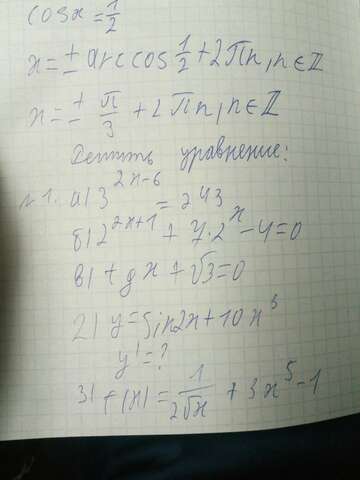 cosx = 1/2
x = ± arccos 1/2 + 2πn, n ∈ Z
x = ± π/3 + 2πn, n ∈ Z
Решить уравнение:
№1. а) 3^(2x-6) = 243
б) 2^(2x+1) + 7·2^x - 4 = 0
в) tgx + √3 = 0
2) y = sin2x + 10x^3
y' = ?
3) f(x) = 1/(2√x) + 3x^5 - 1